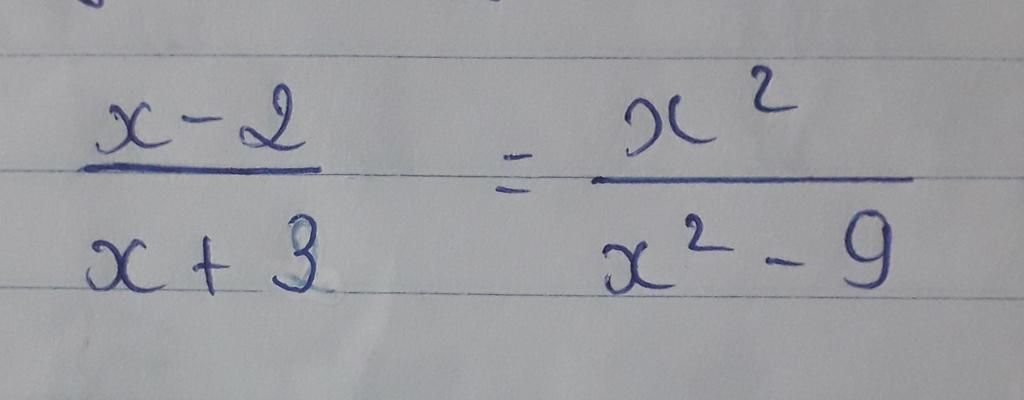 x - 2 / x + 3 = x² / x² - 9